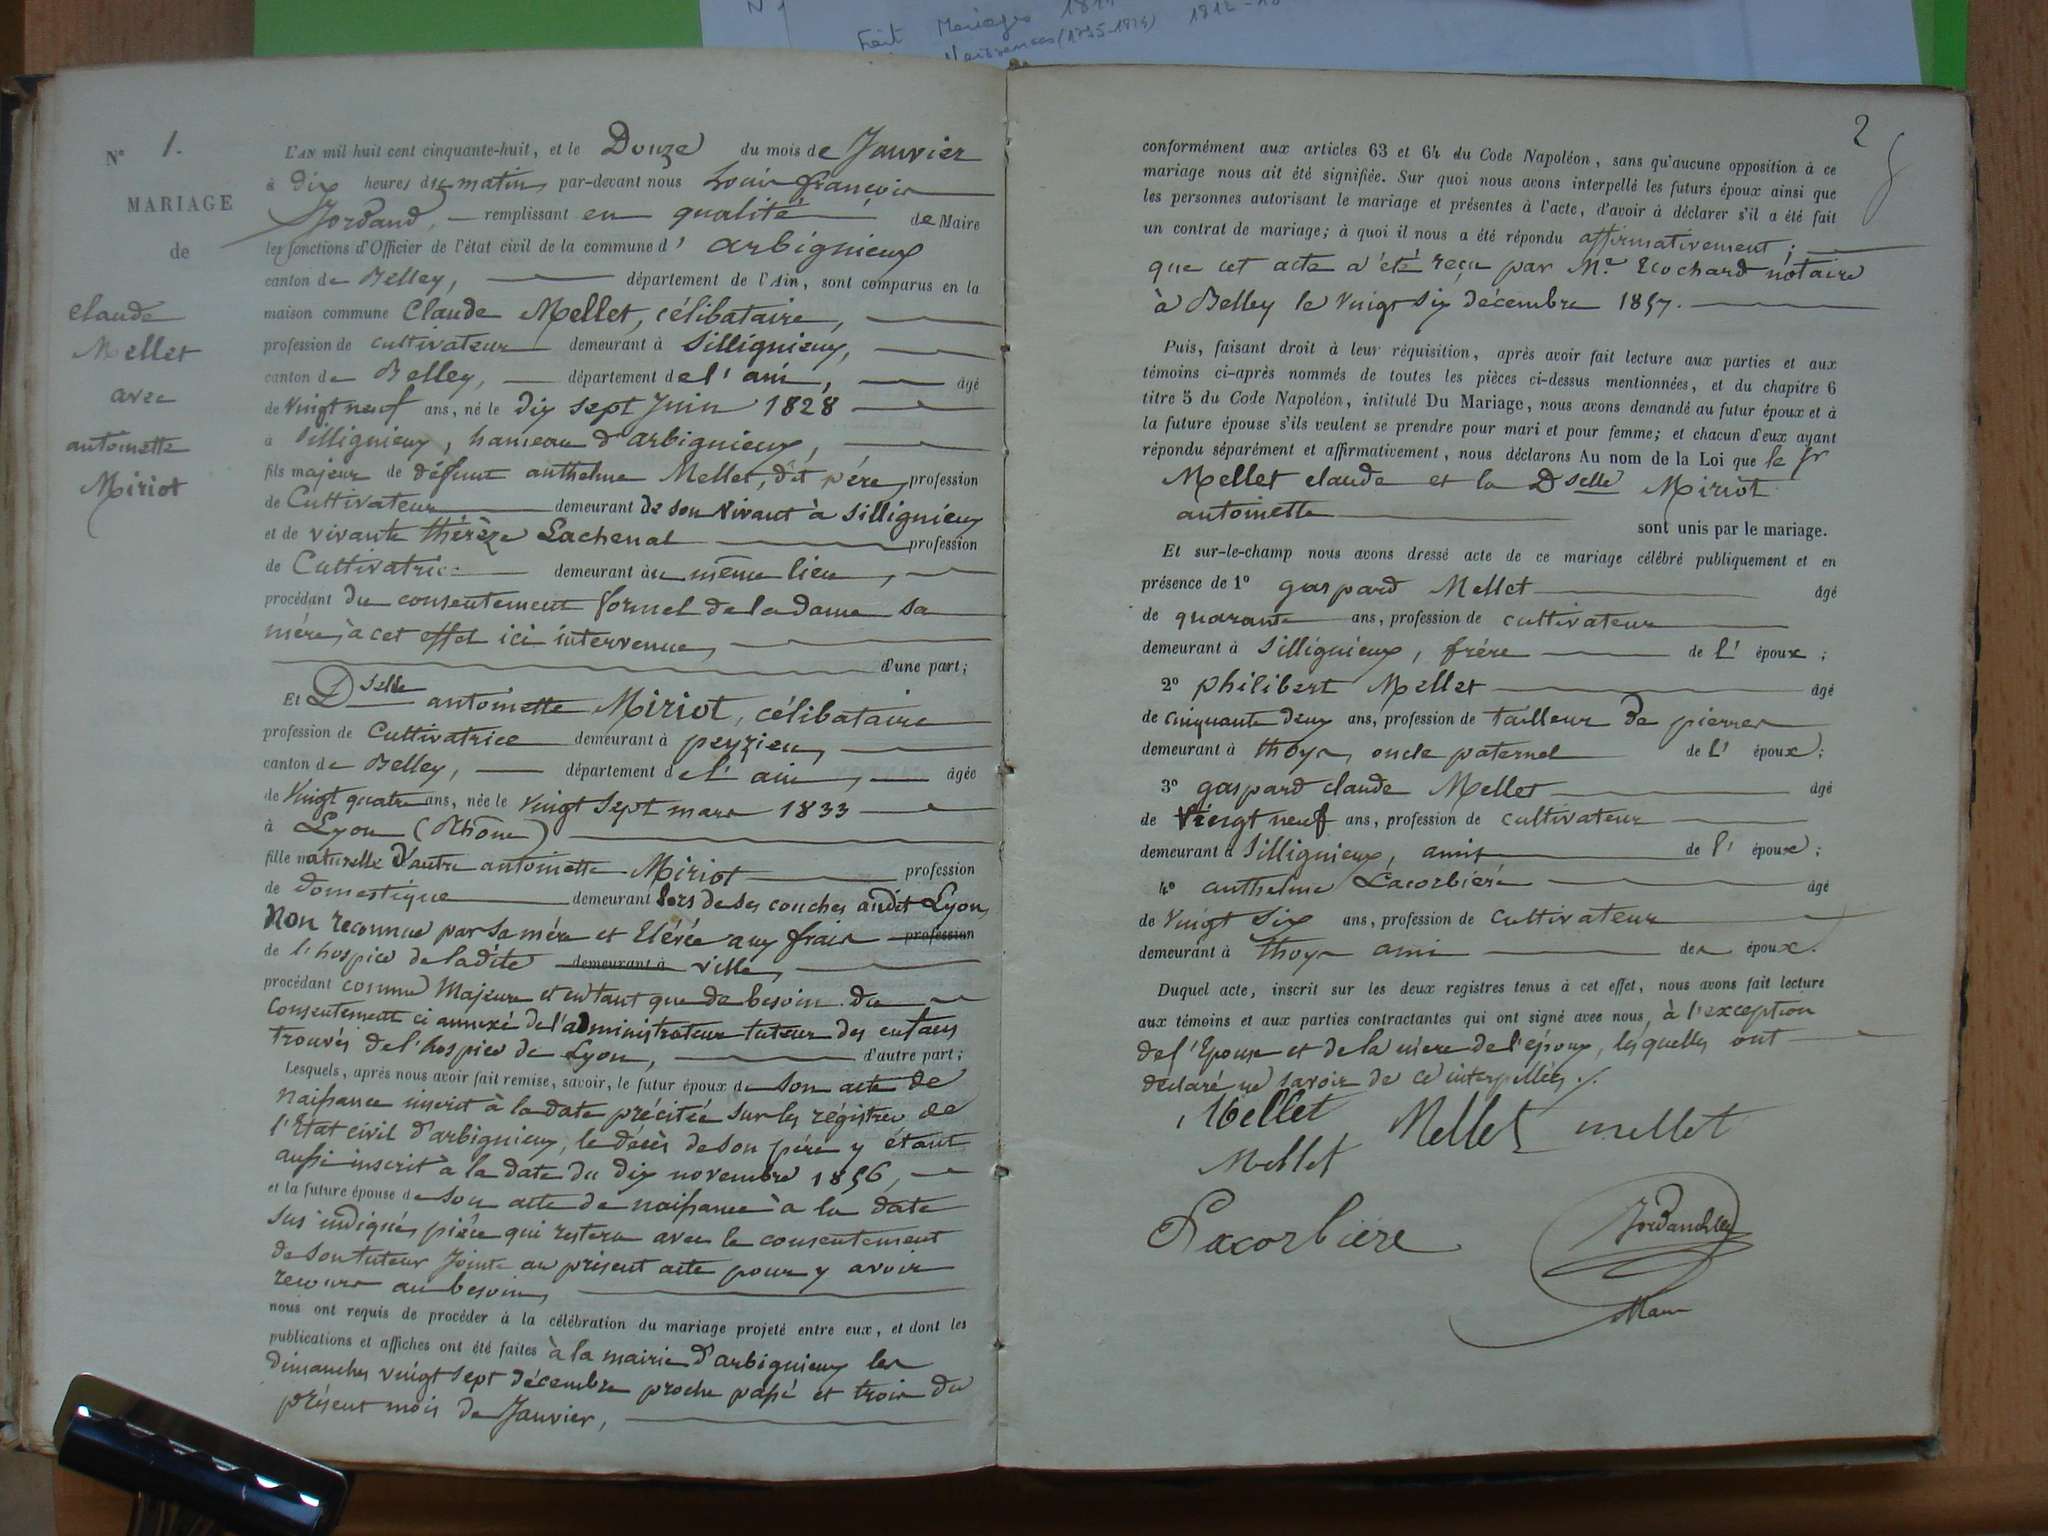 N 1
Fait Mariages 181
Naissances (1795-1824) 1812-18
N° 1.
MARIAGE
de
claude
Mellet
avec
antoinette
Miriot
L'AN mil huit cent cinquante-huit, et le Douze du mois de Janvier
à dix heures du matin, par-devant nous Louis françois
Jordand, remplissant en qualité de Maire
les fonctions d'Officier de l'état civil de la commune d'arbignieux
canton de Belley, département de l'Ain, sont comparus en la
maison commune Claude Mellet, célibataire,
profession de cultivateur demeurant à Sillignieux,
canton de Belley, département de l'ain, âgé
de vingt neuf ans, né le dix sept Juin 1828
à Sillignieux, hameau d'arbignieux,
fils majeur de défunt anthelme Mellet, dit père, profession
de Cultivateur demeurant de son vivant à Sillignieux
et de vivante thérèze Lachenal profession
de Cultivatrice demeurant au même lieu,
procédant du consentement formel de la dame sa
mère, à cet effet ici intervenue,
d'une part;
Et Dselle antoinette Miriot, célibataire
profession de Cultivatrice demeurant à peyzieu,
canton de Belley, département de l'ain, âgée
de Vingt quatre ans, née le vingt sept mars 1833
à Lyon (Rhône)
fille naturelle d'autre antoinette Miriot profession
de domestique demeurant lors de ses couches audit Lyon,
Non reconnue par sa mère et Elévée aux frais profession
de l'hospice de la dite demeurant à ville,
procédant comme Majeure et en tant que de besoin du
consentement ci annexé de l'administrateur tuteur des enfans
trouvés de l'hospice de Lyon, d'autre part;
Lesquels, après nous avoir fait remise, savoir, le futur époux de son acte de
naissance inscrit à la date précitée sur les régistres de
l'Etat civil d'arbignieux, le décès de son père y étant
aussi inscrit à la date du dix novembre 1856,
et la future épouse de son acte de naissance à la date
sus indiquée, pièce qui restera avec le consentement
de son tuteur Jointe au présent acte pour y avoir
recours au besoin,
nous ont requis de procéder à la célébration du mariage projeté entre eux, et dont les
publications et affiches ont été faites à la mairie d'arbignieux les
dimanches vingt sept décembre proche passé et trois du
présent mois de Janvier,
2
conformément aux articles 63 et 64 du Code Napoléon, sans qu'aucune opposition à ce
mariage nous ait été signifiée. Sur quoi nous avons interpellé les futurs époux ainsi que
les personnes autorisant le mariage et présentes à l'acte, d'avoir à déclarer s'il a été fait
un contrat de mariage; à quoi il nous a été répondu affirmativement;
que cet acte a été reçu par Me Trochard notaire
à Belley le vingt six décembre 1857.
Puis, faisant droit à leur réquisition, après avoir fait lecture aux parties et aux
témoins ci-après nommés de toutes les pièces ci-dessus mentionnées, et du chapitre 6
titre 5 du Code Napoléon, intitulé Du Mariage, nous avons demandé au futur époux et à
la future épouse s'ils veulent se prendre pour mari et pour femme; et chacun d'eux ayant
répondu séparément et affirmativement, nous déclarons Au nom de la Loi que le sr
Mellet claude et la Dselle Miriot
antoinette
sont unis par le mariage.
Et sur-le-champ nous avons dressé acte de ce mariage célébré publiquement et en
présence de 1° gaspard Mellet âgé
de quarante ans, profession de cultivateur
demeurant à Sillignieux, frère de l'époux;
2° philibert Mellet âgé
de cinquante deux ans, profession de tailleur de pierres
demeurant à thoys, oncle paternel de l'époux;
3° gaspard claude Mellet âgé
de vingt neuf ans, profession de cultivateur
demeurant à Sillignieux, ami de l'époux;
4° anthelme Lacorbière âgé
de vingt six ans, profession de cultivateur
demeurant à thoys ami des époux.
Duquel acte, inscrit sur les deux registres tenus à cet effet, nous avons fait lecture
aux témoins et aux parties contractantes qui ont signé avec nous, à l'exception
de l'Epouse et de la mère de l'époux, lesquelles ont
déclaré ne savoir de ce interpellées.
Mellet Mellet mellet
Mellet
Lacorbière
Maire